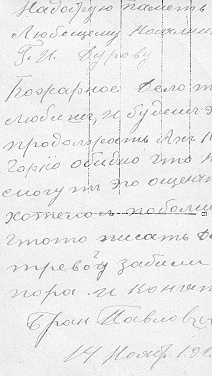 На добрую память
Любящему Начальни
Г. И. Дурову
Пожарное дело т
любишь, и будешь
продолжать Ах
Горко обидно что н
смогу ты по оценит
хотелось поболи
чтото писать да
тревогу забили
пора. и кончат
Бран Павлович
14 Ноябр 19